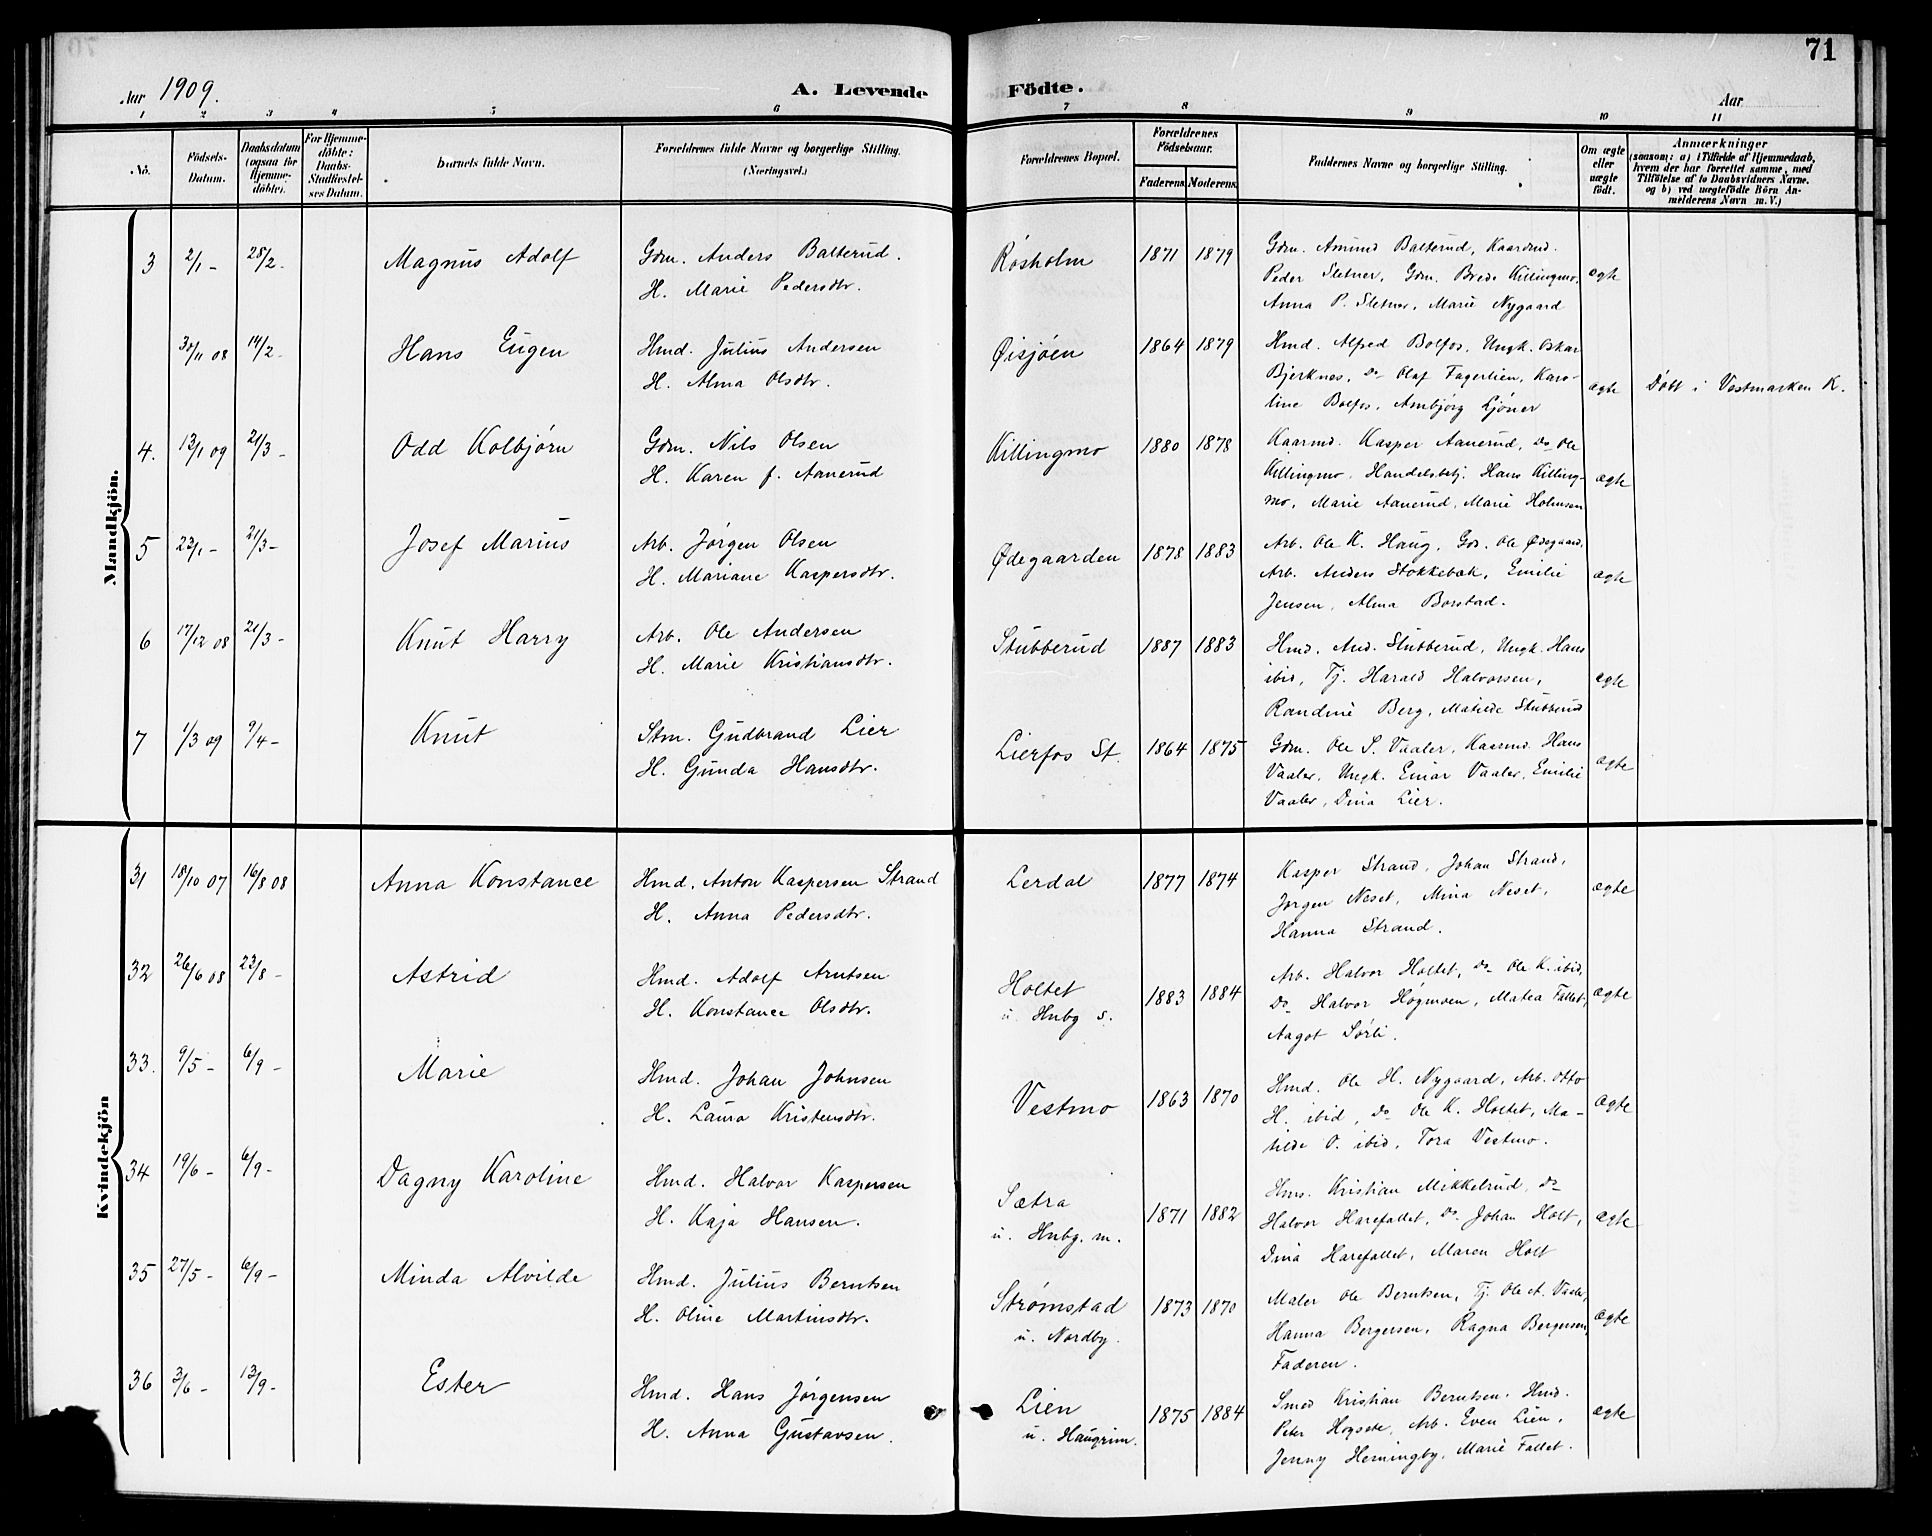 71
Aar 1909.
A. Levende Födte.
Aar
1 2 3 4 5 6 7 8 9 10 11
No.
Födsels-Datum.
Daabsdatum (ogsaa for Hjemme-döbte).
For Hjemme-döbte: Daabs-Stadfæstel-ses Datum.
Barnets fulde Navn.
Forældrenes fulde Navne og borgerlige Stilling. (Næringsvei.)
Forældrenes Bopæl.
Forældrenes Födselsaar.
Faderens. Moderens.
Faddernes Navne og borgerlige Stilling.
Om ægte eller uægte födt.
Anmærkninger
(saasom: a) i Tilfælde af Hjemmedaab, hvem der har forrettet samme, med Tilföielse af to Daabsvidners Navne. og b) ved uægtefödte Börn An-melderens Navn m. V.)
Mandkjön.
3 2/1 - 28/2 - Magnus Adolf
Gdm. Anders Balterud.
H. Marie Pedersdtr.
Røsholm 1871 1879
Gdm. Amund Balterud, Kaarmd.
Peder Sletner, Gdm. Brede Killingmo,
Anna P. Sletner, Marie Nygaard
ægte
30/11 08 14/2 - Hans Eugen
Hmd. Julius Andersen
H. Alma Olsdtr.
Øisjøen 1864 1879
Hmd. Alfred Bolfos, Ungk. Oskar
Bjerknes, Do Olaf Fagerlien, Karo-
line Bolfos, Arnbjörg Ljöner
ægte
Döbt i Vestmarken K.
4. 13/1 09 21/3 - Odd Kolbjørn
Gdm. Nils Olsen
H. Karen f. Aanerud
Killingmo 1880 1878
Kaarmd. Kasper Aanerud, Do Ole
Killingmo, Handelsbetj. Hans Killing-
mo, Marie Aanerud, Marie Holmsen
ægte
5 22/1 - 21/3 - Josef Marius
Arb. Jørgen Olsen
H. Mariane Kaspersdtr.
Ødegaarden 1878 1883
Arb. Ole K. Haug, Gds. Ole Ødegaard,
Arb. Anders Stokkebæk, Emilie
Jensen, Alma Borstad.
ægte
6 17/12 08 21/3 - Knut Harry
Arb. Ole Andersen
H. Marie Kristiansdtr.
Stubberud 1887 1883
Hmd. And. Stubberud, Ungk. Hans
ibid, Tj. Harald Halvorsen,
Randine Berg, Matilde Stubberud
ægte
7 1/3 09 9/4 - Knut
Stm. Gudbrand Lier
H. Gunda Hansdtr.
Lierfos St. 1864 1875
Gdm. Ole S. Vaaler, Kaarmd. Hans
Vaaler, Ungk. Einar Vaaler, Emilie
Vaaler, Dina Lier.
ægte
Kvindekjön
31 18/10 07 16/8 08 Anna Konstance
Hmd. Anton Kaspersen Strand
H. Anna Pedersdtr.
Lerdal 1877 1874
Kasper Strand, Johan Strand,
Jørgen Neset, Mina Neset,
Hanna Strand.
ægte
32 26/6 08 23/8 - Astrid
Hmd. Adolf Arntsen
H. Konstance Olsdtr.
Holtet
u. Hnbg s.
1883 1884
Arb. Halvor Holtet, Do Ole K. ibid,
Do Halvor Høgmoen, Matea Fallet,
Aagot Sörli.
ægte
33. 9/5 - 6/9 - Marie
Hmd. Johan Johnsen
H. Laura Kristensdtr.
Vestmo 1863 1870
Hmd. Ole H. Nygaard, Arb. Otto
H. ibid, Do Ole K. Holtet, Ma-
tilde O. ibid, Tora Vestmo.
ægte
34 19/6 - 6/9 - Dagny Karoline
Hmd. Halvor Kaspersen
H. Kaja Hansen.
Sætra
u. Hnbg. m.
1871 1882
Hms. Kristian Mikkelrud, Do
Halvor Harefallet, Do Johan Holt,
Dina Harefallet, Maren Holt
ægte
35 27/5 - 6/9 - Minda Alvilde
Hmd. Julius Berntsen
H. Oline Martinsdtr.
Strømstad
u. Nordby.
1873 1870
Maler Ole Berntsen, Tj. Ole A. Vaaler,
Hanna Bergersen, Ragna Bergersen,
Faderen.
ægte
36 3/6 - 13/9 - Ester
Hmd. Hans Jørgensen
H. Anna Gustavsen.
Lien
u. Haugrim.
1875 1884
Smed Kristian Berntsen. Hmd.
Peter Hogsete, Arb. Even Lien,
Jenny Hemingby, Marie Fallet.
ægte